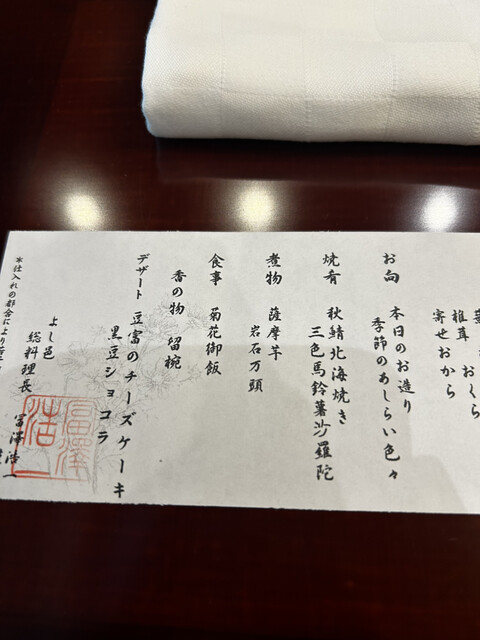 おくら
椎茸
寄せおから
お向 本日のお造り
季節のあしらい色々
焼肴 秋鯖北海焼き
三色馬鈴薯沙羅陀
煮物 薩摩芋
岩石万頭
食事 菊花御飯
香の物 留椀
デザート 豆富のチーズケーキ
黒豆ショコラ
よし邑
総料理長 冨澤浩一
※仕入れの都合により